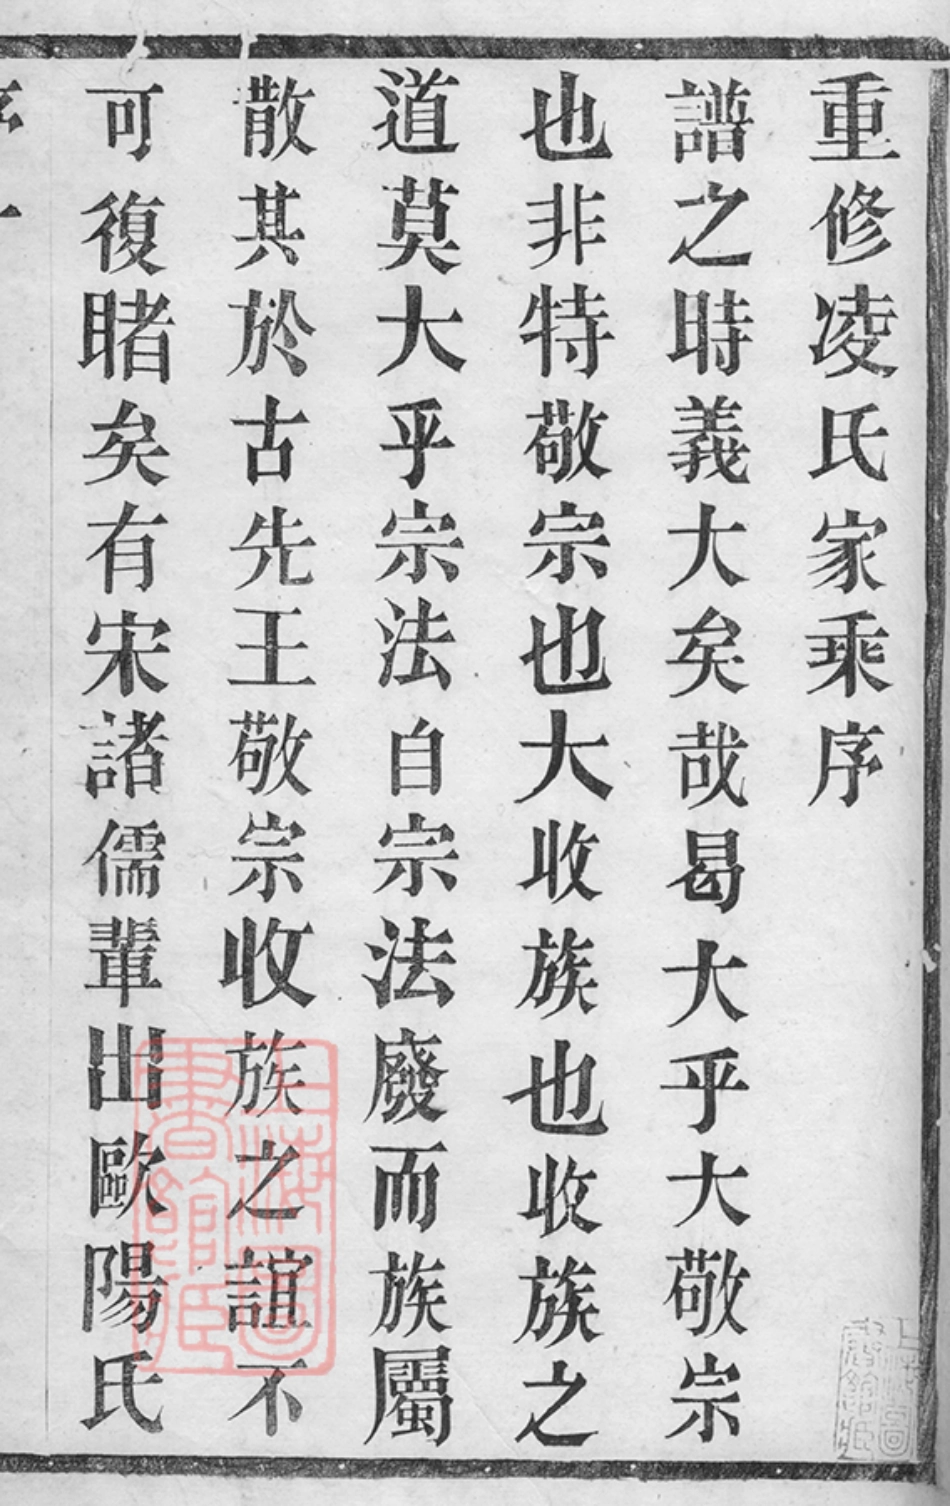 重修凌氏家乘序
譜之時義大矣哉曷大乎大敬宗
也非特敬宗也大收族也收族之
道莫大乎宗法自宗法廢而族屬
散其於古先王敬宗收族之誼不
可復睹矣有宋諸儒輩出歐陽氏
上海圖書館藏